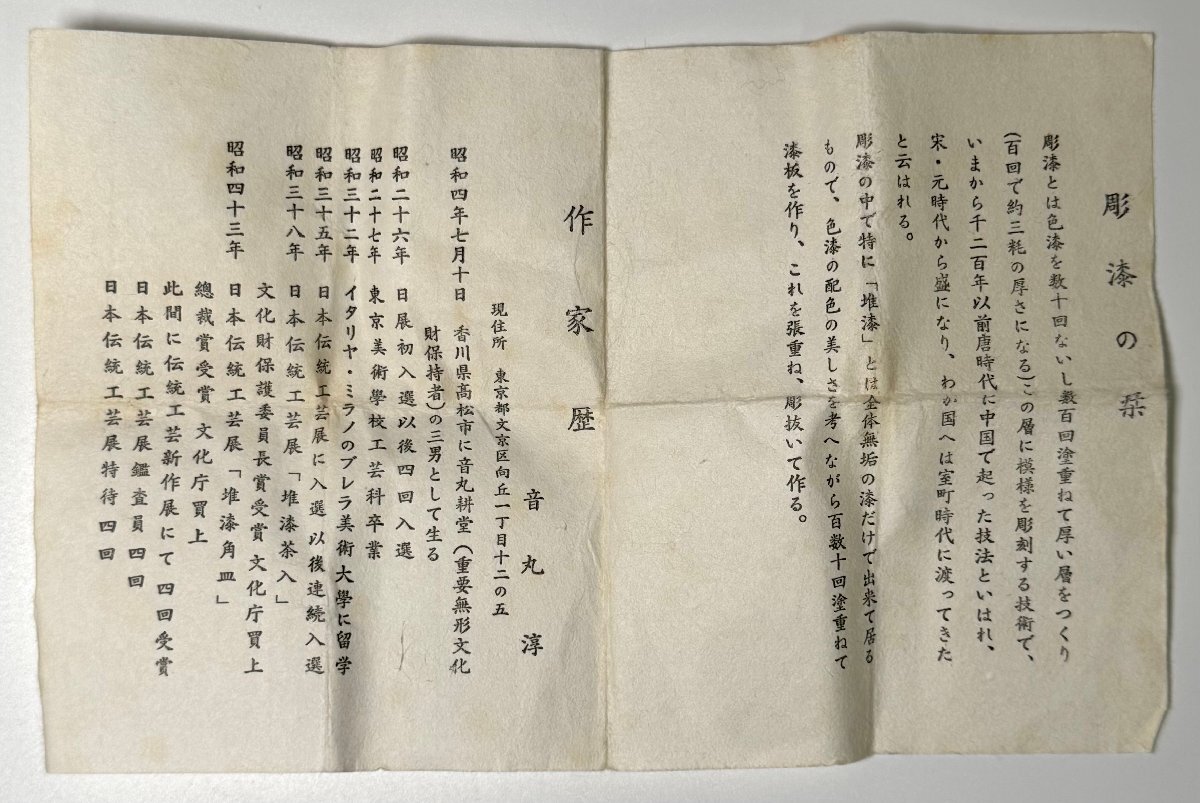 彫漆の栞
彫漆とは色漆を数十回ないし数百回塗重ねて厚い層をつくり
(百回で約三粍の厚さになる)この層に模様を彫刻する技術で、
いまから千二百年以前唐時代に中国で起った技法といはれ、
宋・元時代から盛になり、わが国へは室町時代に渡ってきた
と云はれる。
彫漆の中で特に「堆漆」とは全体無垢の漆だけで出来て居る
もので、色漆の配色の美しさを考へながら百数十回塗重ねて
漆板を作り、これを張重ね、彫抜いて作る。
作家歴
音丸淳
現住所 東京都文京区向丘一丁目十二の五
昭和四年七月十日 香川県高松市に音丸耕堂(重要無形文化
財保持者)の三男として生る
昭和二十六年 日展初入選以後四回入選
昭和二十七年 東京美術學校工芸科卒業
昭和三十二年 イタリヤ・ミラノのブレラ美術大學に留学
昭和三十五年 日本伝統工芸展に入選以後連続入選
昭和三十八年 日本伝統工芸展「堆漆茶入」
文化財保護委員長賞受賞 文化庁買上
昭和四十三年 日本伝統工芸展「堆漆角皿」
總裁賞受賞 文化庁買上
此間に伝統工芸新作展にて四回受賞
日本伝統工芸展鑑査員四回
日本伝統工芸展特待四回